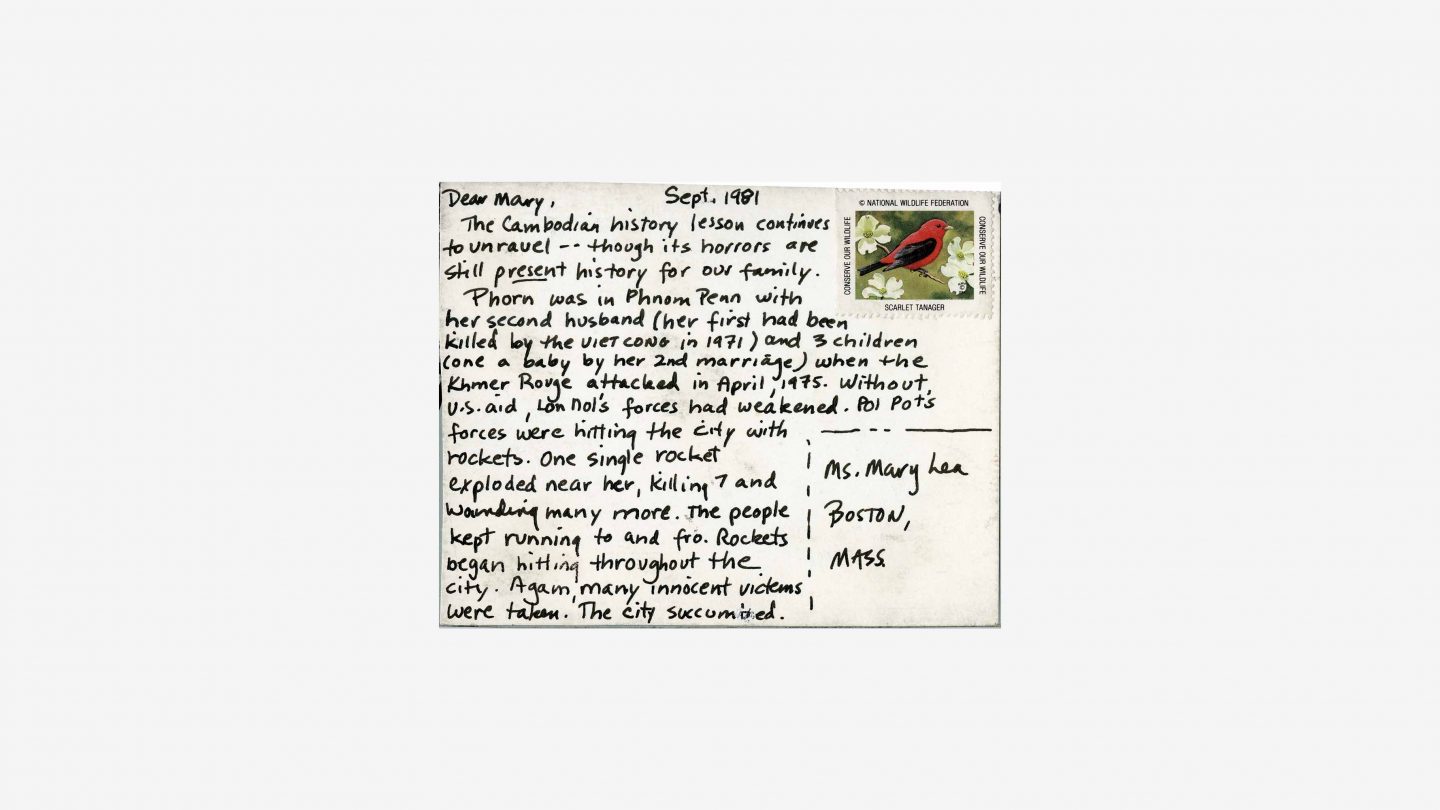 Dear Mary, Sept. 1981
The Cambodian history lesson continues
to unravel -- though its horrors are
still present history for our family.
Phorn was in Phnom Penn with
her second husband (her first had been
killed by the VIET CONG in 1971) and 3 children
(one a baby by her 2nd marriage) when the
Khmer Rouge attacked in April, 1975. Without
U.S. aid, Lon Nol's forces had weakened. Pol Pot's
forces were hitting the city with
rockets. One single rocket
exploded near her, killing 7 and
wounding many more. The people
kept running to and fro. Rockets
began hitting throughout the
city. Again, many innocent victims
were taken. The city succumbed.
© NATIONAL WILDLIFE FEDERATION
CONSERVE OUR WILDLIFE
CONSERVE OUR WILDLIFE
SCARLET TANAGER
Ms. Mary Lea
BOSTON,
MASS.